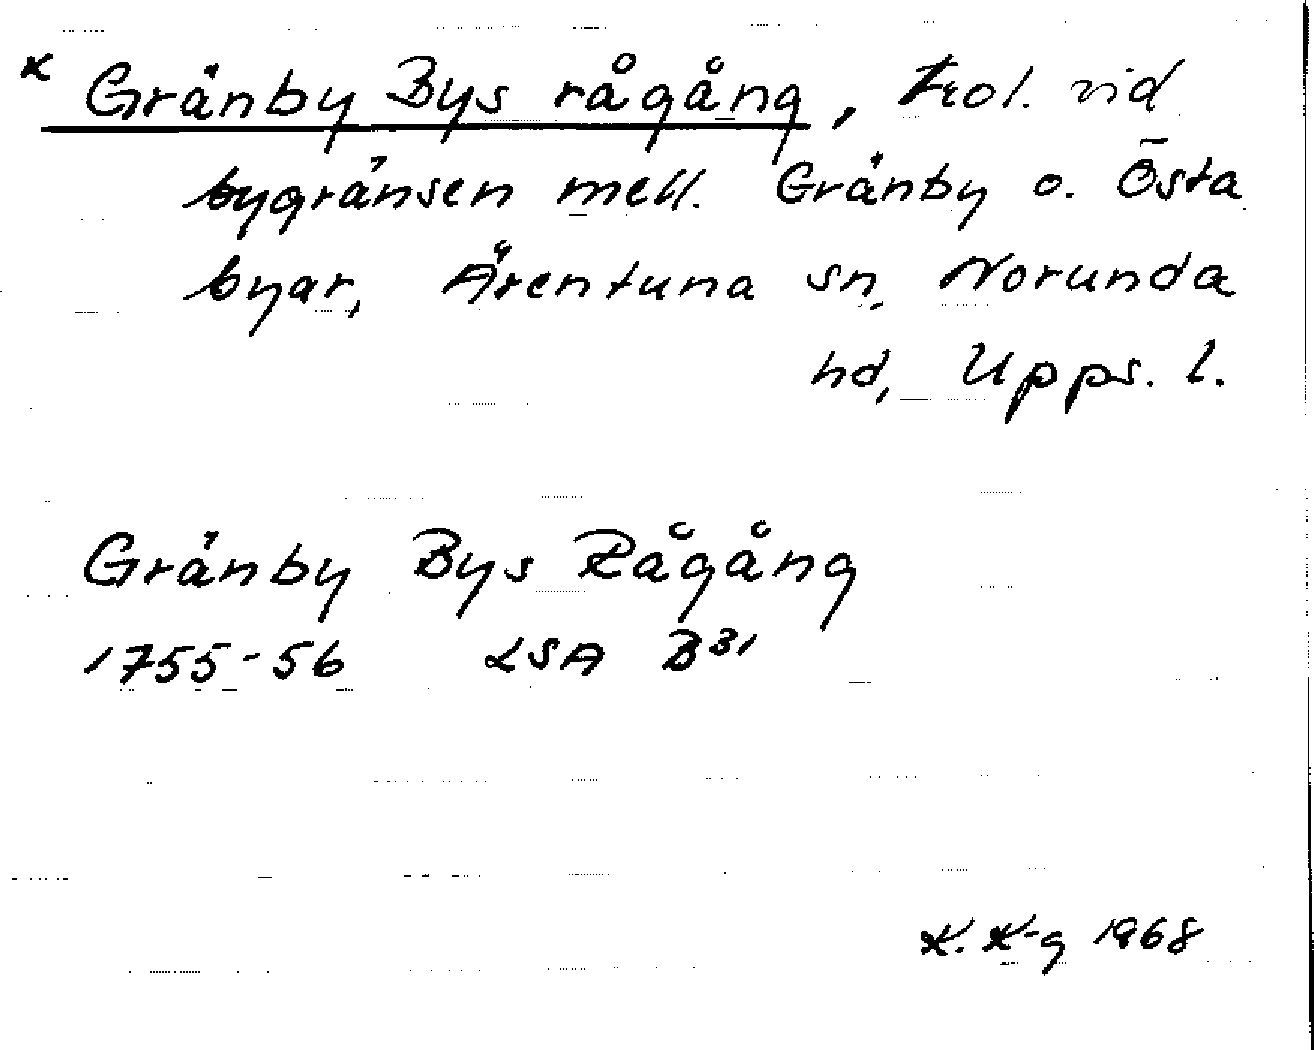 x Gränby Bys rågång, trol. vid
bygränsen mell. Gränby o. Östa
byar, Ärentuna sn, Norunda
hd, Upps. l.
Gränby Bys Rågång
1755-56 LSA B31
K. K-g 1968